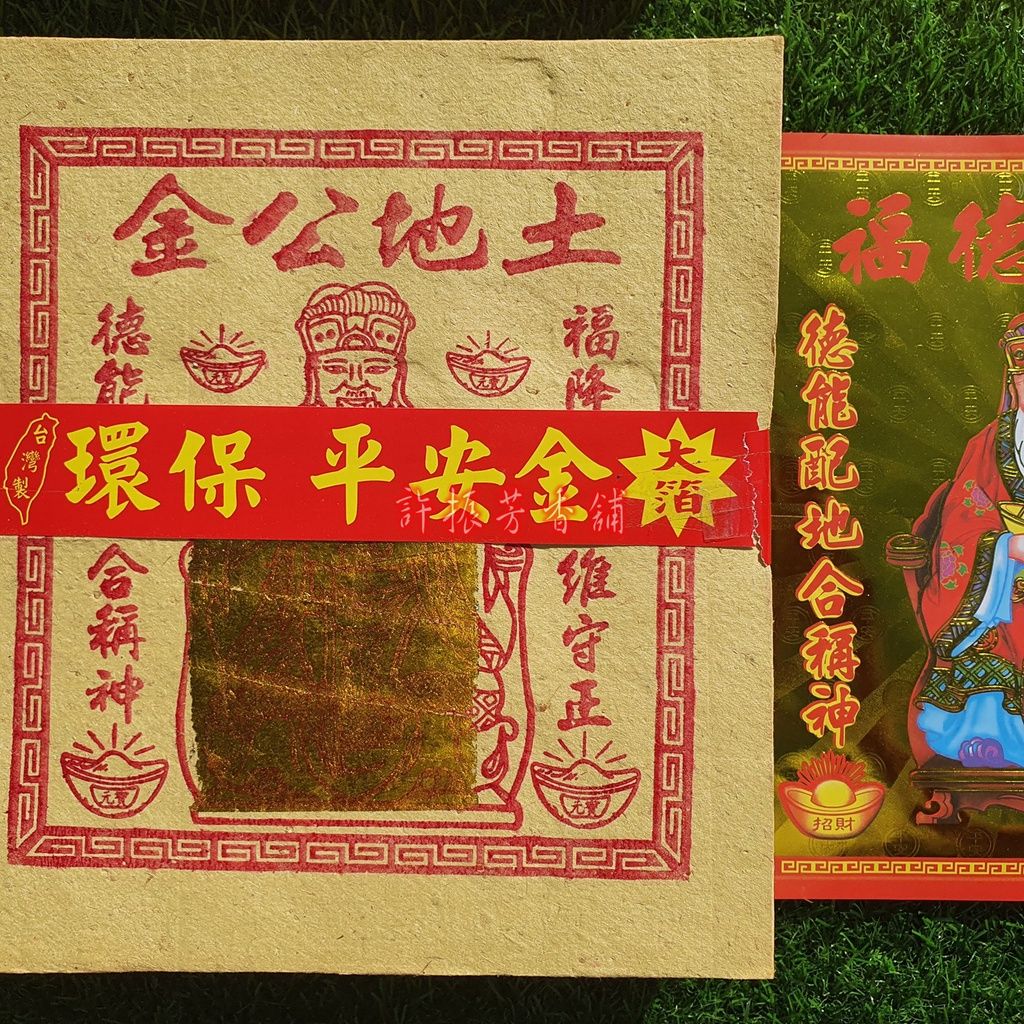 土地公金
福降
維守正
德能
合稱神
元寶
元寶
元寶
元寶
台灣製
環保 平安金
大箔
許振芳香舖
福德
德能配地合稱神
招財